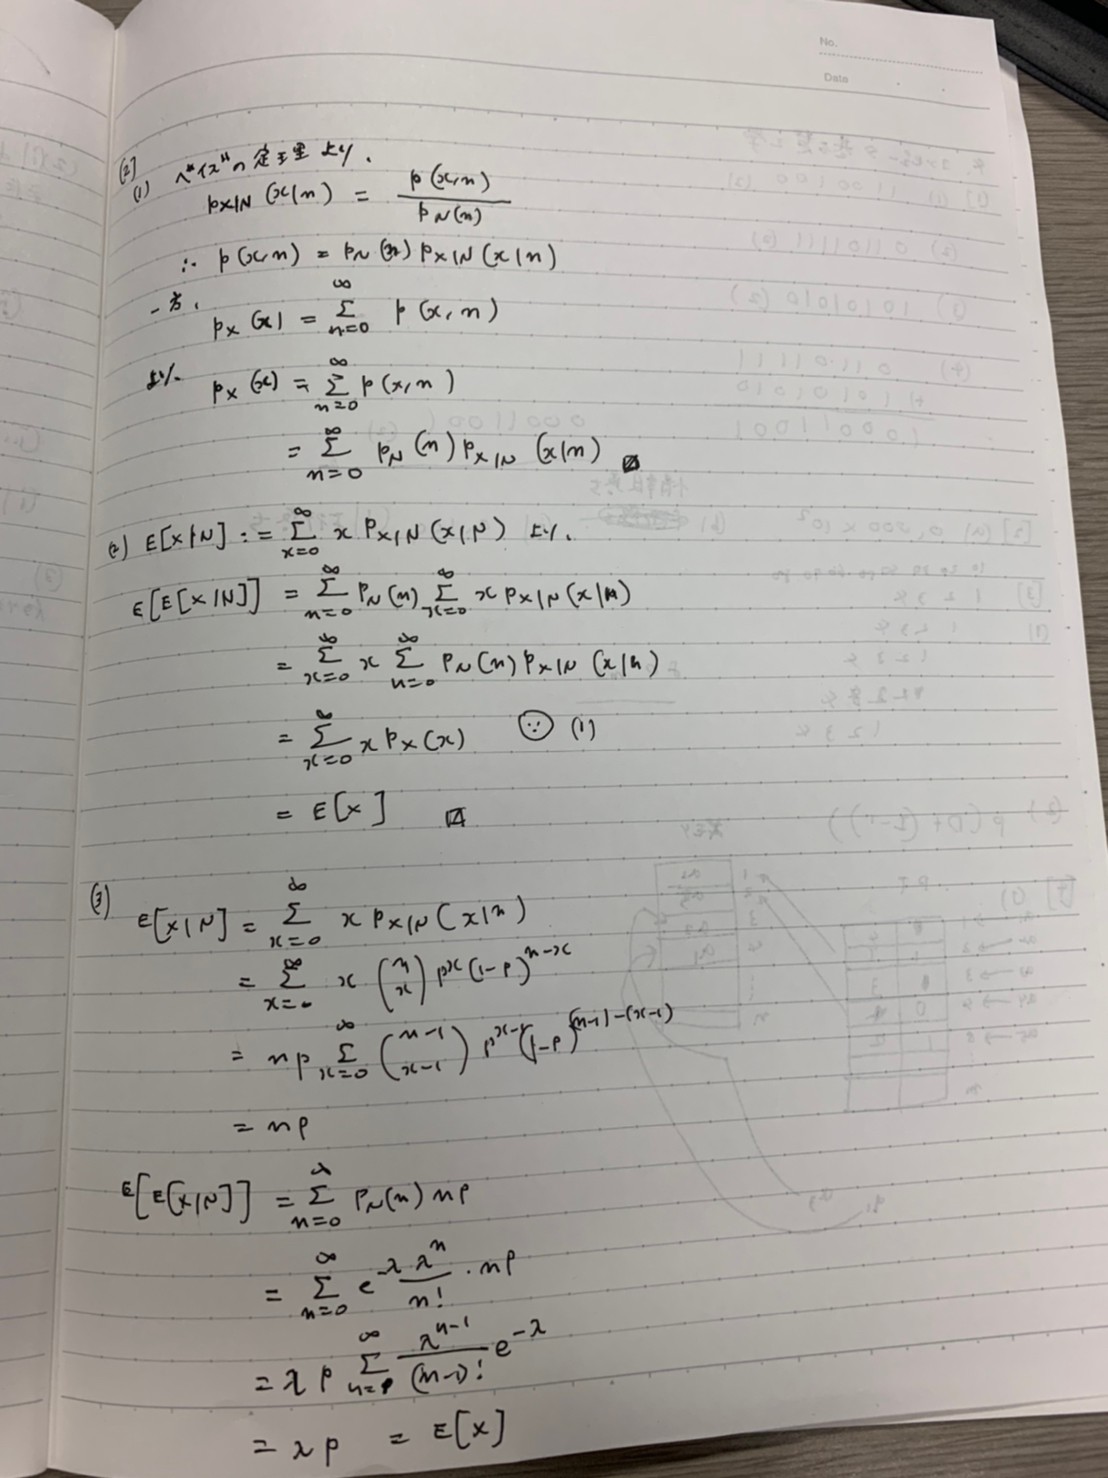 No.
Date
[2]
(1) ベイズの定理より、
p_{X|N}(x|n) = p(x,n) / p_N(n)
∴ p(x,n) = p_N(n) p_{X|N}(x|n)
一方、
p_X(x) = Σ_{n=0}^{∞} p(x,n)
より、 p_X(x) = Σ_{n=0}^{∞} p(x,n)
= Σ_{n=0}^{∞} p_N(n) p_{X|N}(x|n)
(2) E[X|N] := Σ_{x=0}^{∞} x p_{X|N}(x|N) より、
E[E[X|N]] = Σ_{n=0}^{∞} p_N(n) Σ_{x=0}^{∞} x p_{X|N}(x|n)
= Σ_{x=0}^{∞} x Σ_{n=0}^{∞} p_N(n) p_{X|N}(x|n)
= Σ_{x=0}^{∞} x p_X(x) ∵ (1)
= E[X]
(3) E[X|N] = Σ_{x=0}^{∞} x p_{X|N}(x|n)
= Σ_{x=0}^{∞} x (n x) p^x (1-p)^{n-x}
= np Σ_{x=0}^{∞} (n-1 x-1) p^{x-1} (1-p)^{(n-1)-(x-1)}
= np
E[E[X|N]] = Σ_{n=0}^{∞} p_N(n) np
= Σ_{n=0}^{∞} e^{-λ} λ^n / n! · np
= λp Σ_{n=1}^{∞} λ^{n-1} / (n-1)! e^{-λ}
= λp = E[X]